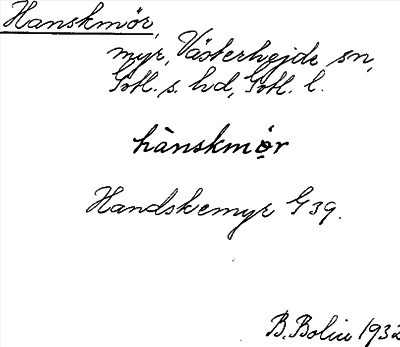 Hanskmör,
myr, Västerhejde sn,
Gotl. s. hd, Gotl. l.
hànskmọ̈r
Handskemyr G 39.
B. Bolin 1932